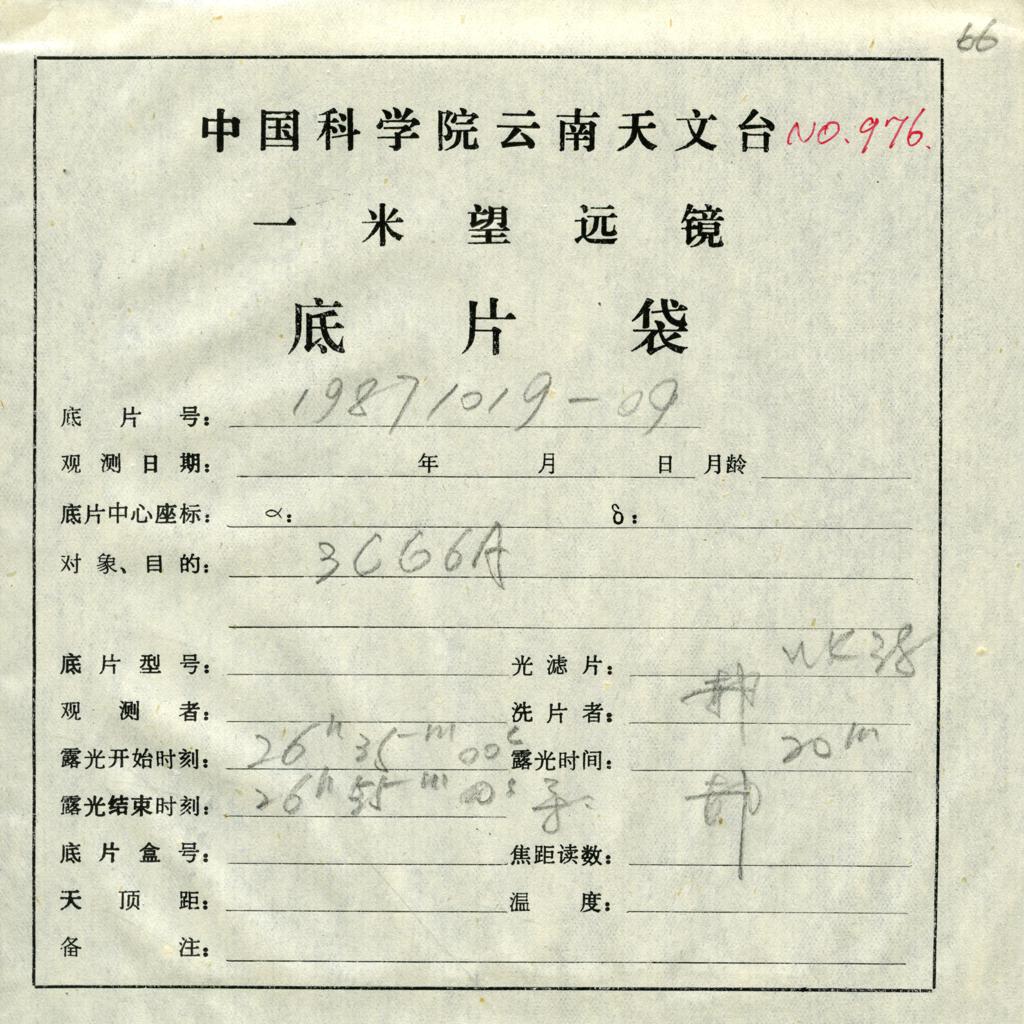 66
中国科学院云南天文台 NO.976.
一米望远镜
底片袋
底片号: 19871019-09
观测日期: 年 月 日 月龄
底片中心座标: α: δ:
对象、目的: 3C66A
底片型号: 光滤片:
观测者: 洗片者:
露光开始时刻: 26h 35m 00s 露光时间: 20m
露光结束时刻: 26h 55m 00s
底片盒号: 焦距读数:
天顶距: 温度:
备注: